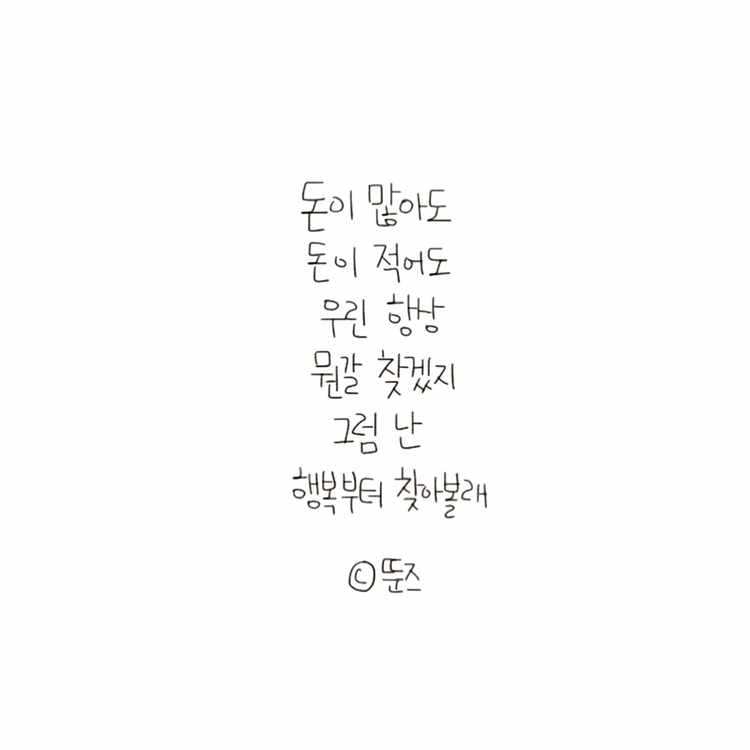 돈이 많아도
돈이 적어도
우린 항상
뭔갈 찾겠지
그럼 난
행복부터 찾아볼래
©뚠즈